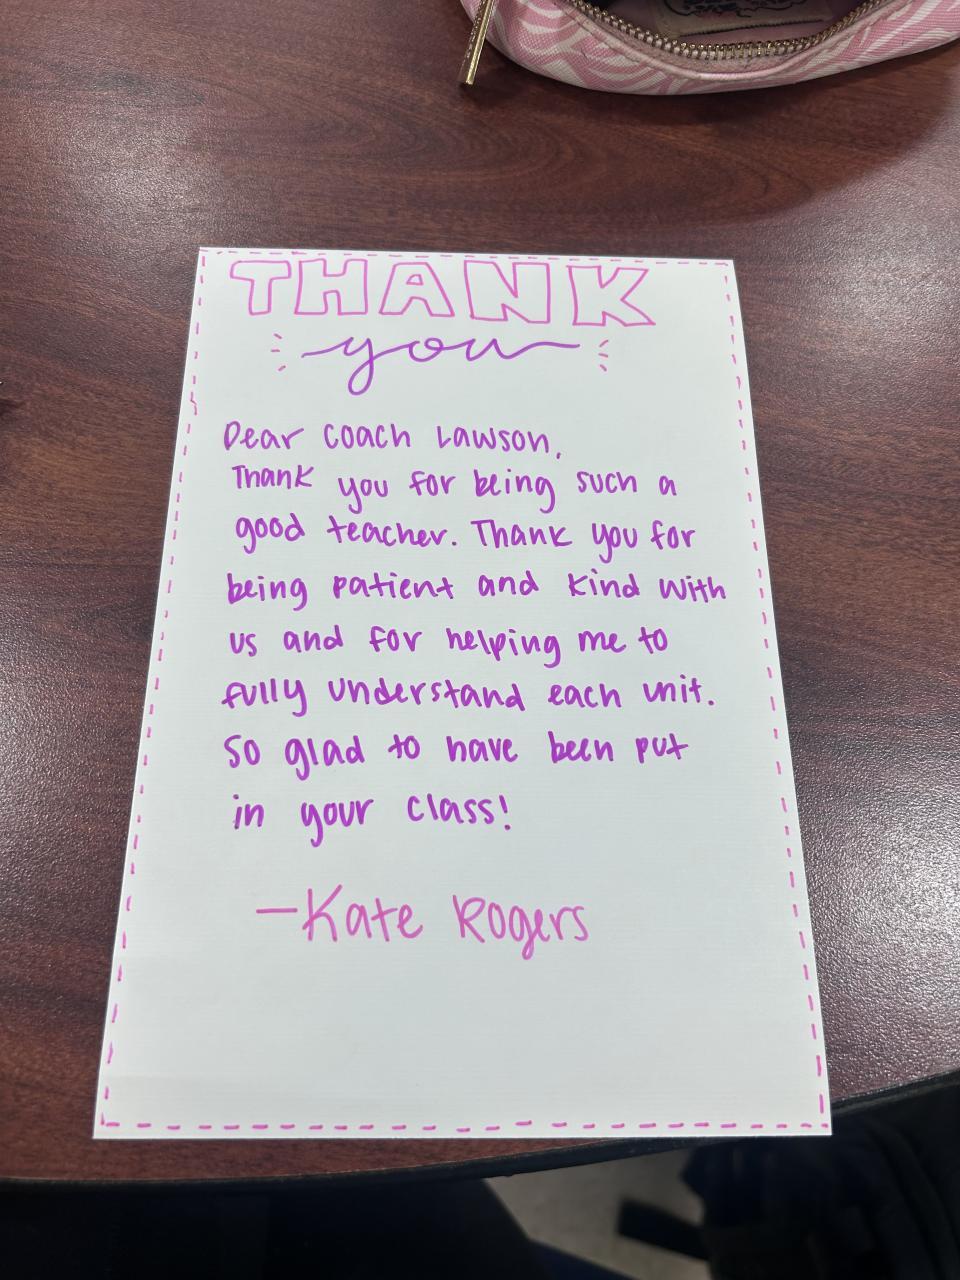 THANK
you
Dear Coach Lawson,
Thank you for being such a
good teacher. Thank you for
being patient and kind with
us and for helping me to
fully understand each unit.
So glad to have been put
in your class!
—Kate Rogers